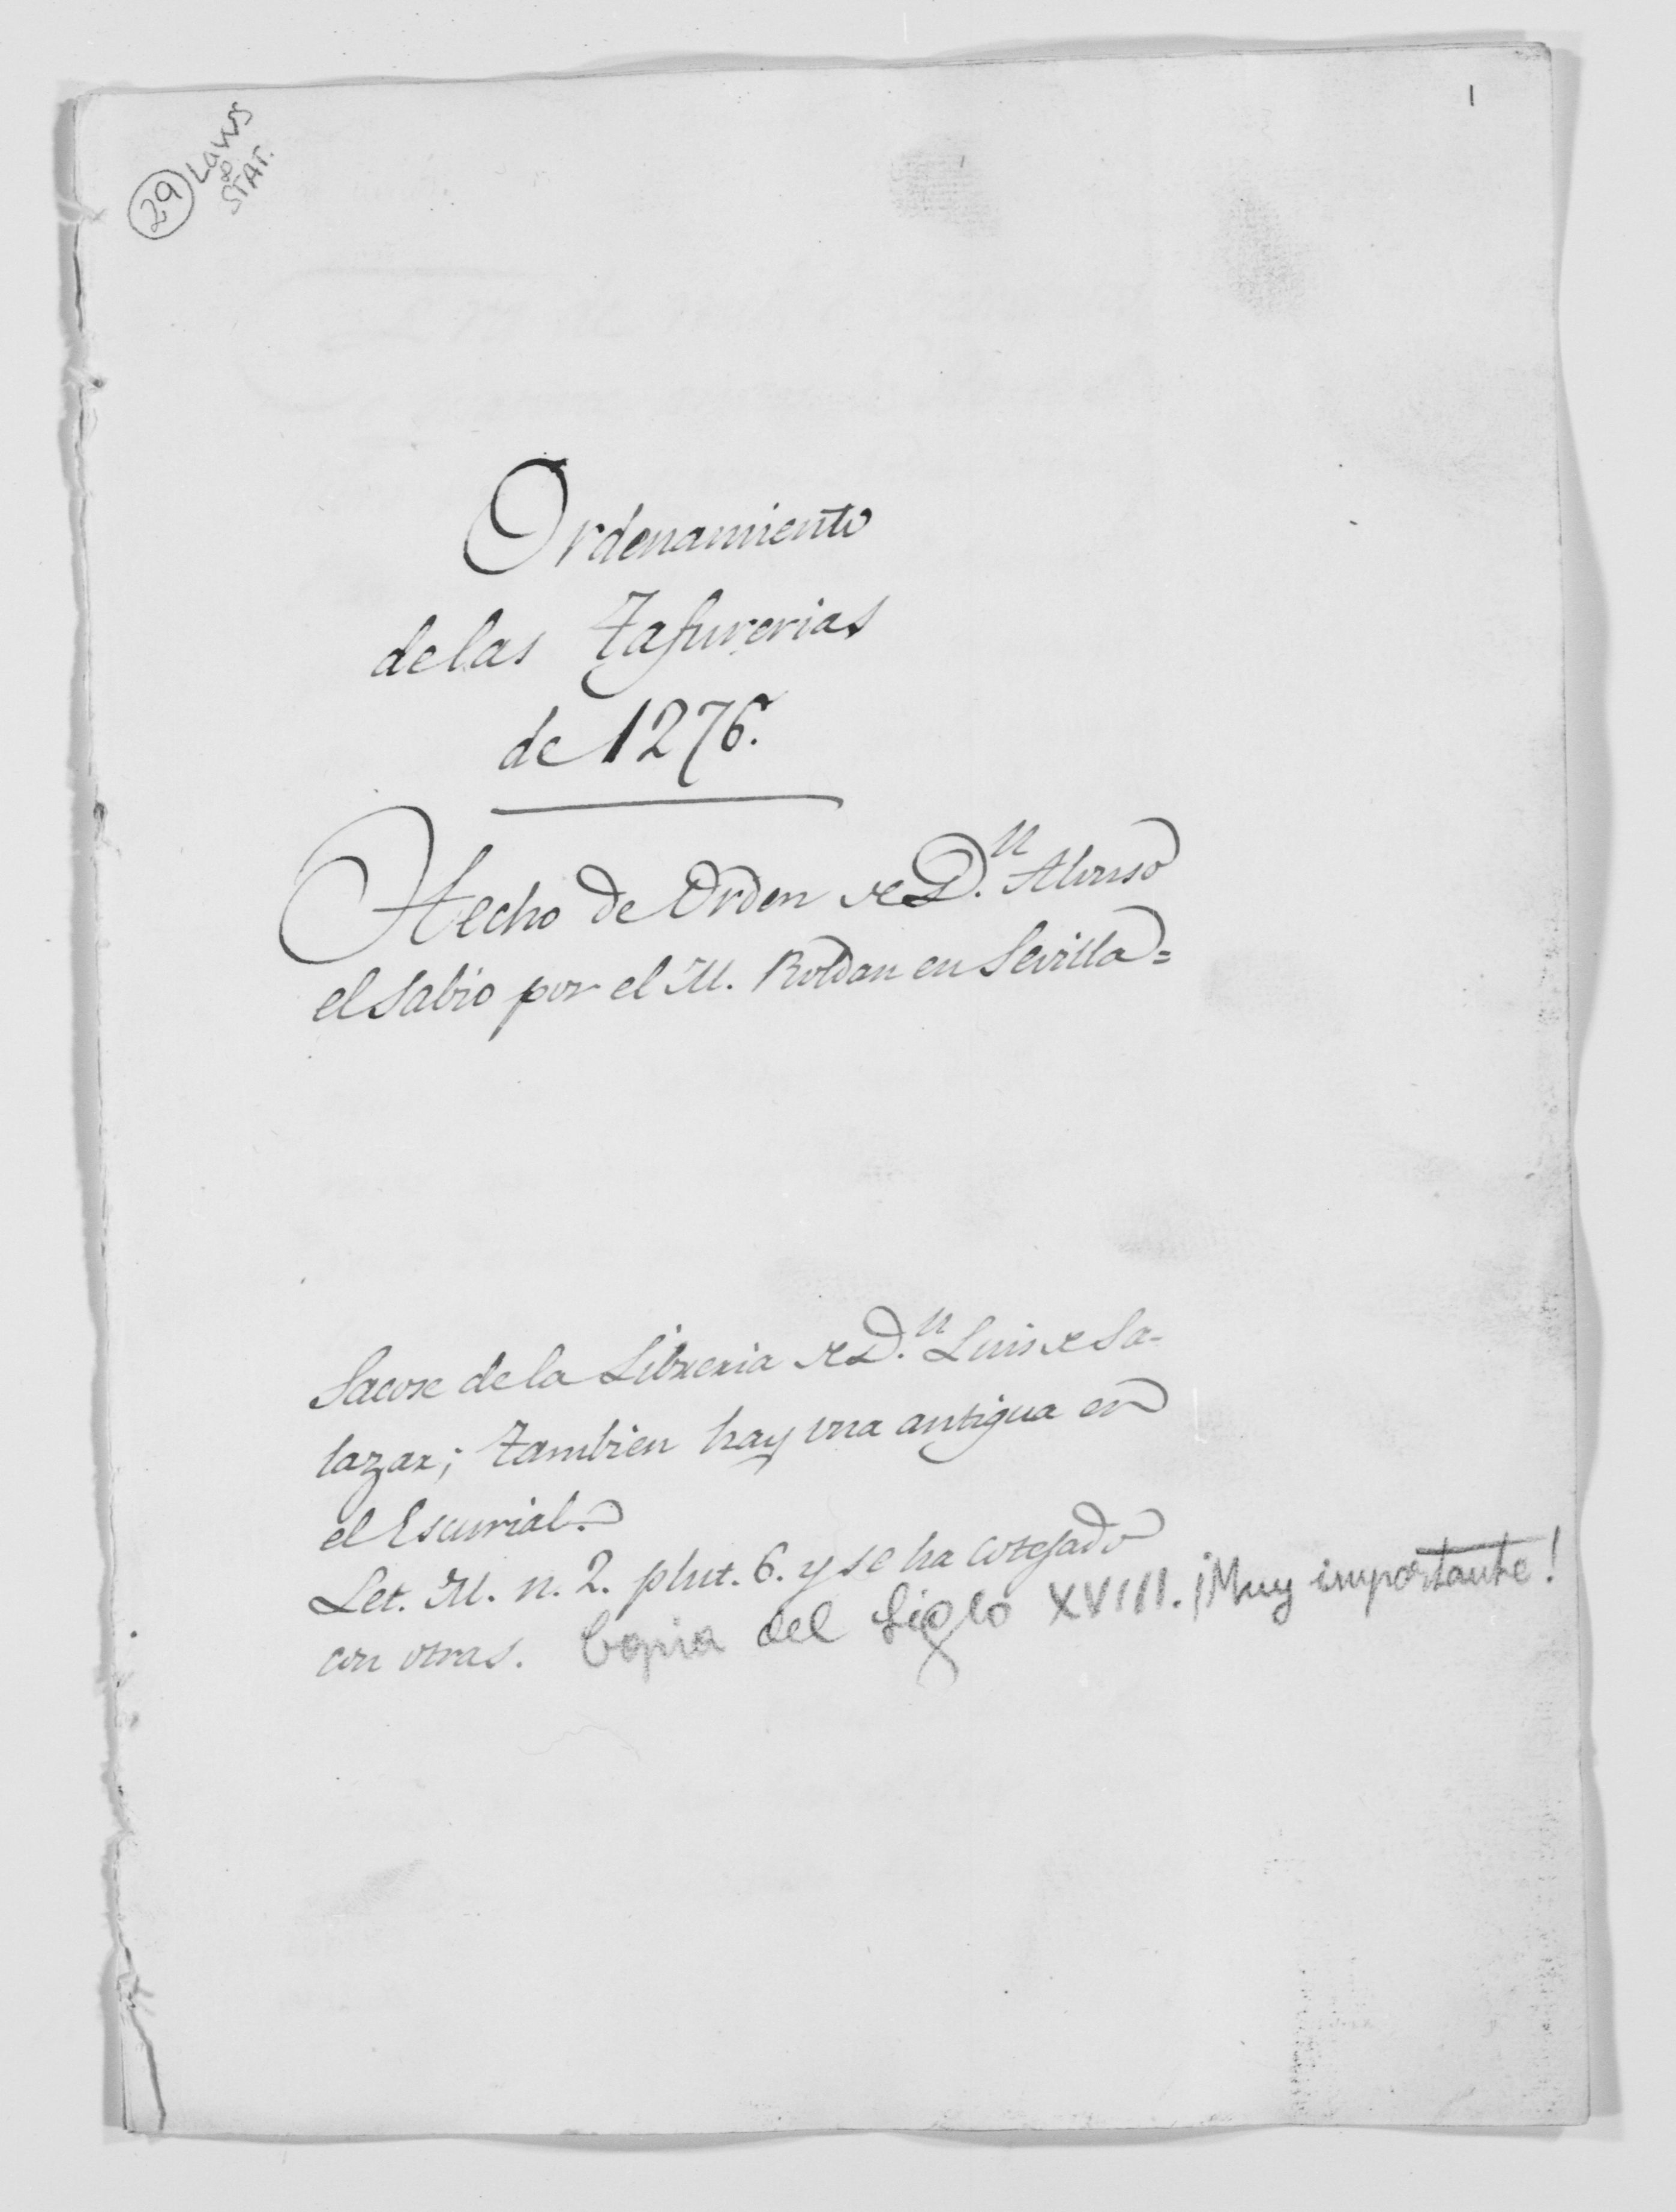 1
29 Laws
&
STAT.
Ordenamiento
de las Tafurerias
de 1276.
Hecho de Orden de D.n Alonso
el Sabio por el M. Roldan en Sevilla=
Sacose de la Libreria de D.n Luis de Sa-
lazar; tambien hay una antigua en
el Escurial.
Let. M. n. 2. plut. 6. y se ha cotejado
con otras. Copia del Siglo XVIII. ¡Muy importante!